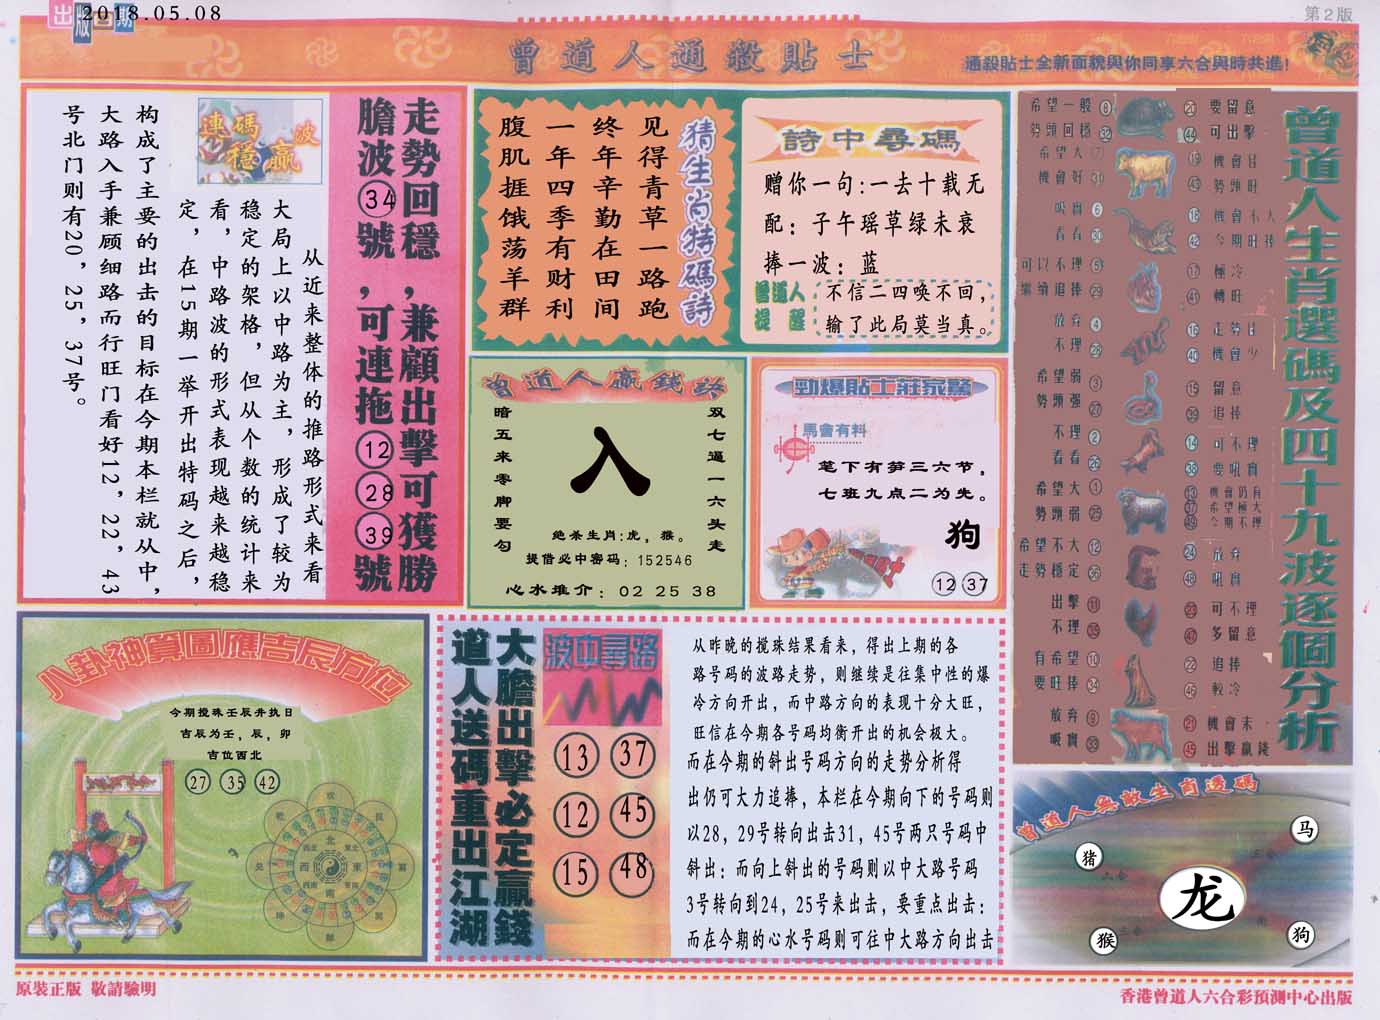 出版日期
2018.05.08
第2版
曾道人通殺貼士
通殺貼士全新面貌與你同享六合與時共進!
走勢回穩,兼顧出擊可獲勝
膽波34號,可連拖12 28 39號
連碼波
穩贏
从近来整体的推路形式来看
大局上以中路为主,形成了较为
稳定的架格,但从个数的统计来
看,中路波的形式表现越来越稳
定,在15期一举开出特码之后,
构成了主要的出击的目标在今期本栏就从中,
大路入手兼顾细路而行旺门看好12,22,43
号北门则有20,25,37号。
猜生肖特碼詩
见得青草一路跑
终年辛勤在田间
一年四季有财利
腹肌捱饿荡羊群
詩中尋碼
赠你一句:一去十载无
配:子午瑶草绿未衰
捧一波:蓝
曾道人提醒
不信二四唤不回,
输了此局莫当真。
曾道人贏錢訣
双七逼一六头走
入
暗五来零脚要勾
绝杀生肖:虎,猴。
提借必中密码:152546
心水推介:02 25 38
勁爆貼士莊家驚
馬會有料
笔下有笋三六节,
七班九点二为先。
狗
12 37
曾道人生肖選碼及四十九波逐個分析
希望一般 8
勢頭回穩 32
20 要留意
44 可出擊
希望大
機會好
19 機會佳
43 勢頭旺
吸實 6
看看 30
18 機會不大
42 今期旺捧
可以不理 5
繼續追捧 29
17 極冷
41 轉旺
放弃 4
不理
16 走勢佳
40 機會少
希望弱 3
勢頭强 27
15 留意
39 追捧
不理 2
看看 26
14 可不理
38 要吼實
希望大 1
勢頭弱 25
13 機會仍有
37 希望極大
49 今期不理
希望不大 12
走勢穩定 36
24 放弃
48 吼實
出擊 11
不理 35
23 可不理
47 多留意
有希望 10
要旺捧 34
22 追捧
46 較冷
放弃 9
吸實 33
21 機會末
45 出擊贏錢
八卦神算圖應吉辰方位
今期搅珠壬辰井执日
吉辰为壬,辰,卯
吉位西北
27 35 42
大膽出擊必定贏錢
道人送碼重出江湖
波中尋路
13 37
12 45
15 48
从昨晚的搅珠结果看来,得出上期的各
路号码的波路走势,则继续是往集中性的爆
冷方向开出,而中路方向的表现十分大旺,
旺信在今期各号码均衡开出的机会极大。
而在今期的斜出号码方向的走势分析得
出仍可大力追捧,本栏在今期向下的号码则
以28,29号转向出击31,45号两只号码中
斜出:而向上斜出的号码则以中大路号码
3号转向到24,25号来出击,要重点出击:
而在今期的心水号码则可往中大路方向出击
曾道人無敵生肖透碼
马
猪
龙
猴
狗
原裝正版 敬請驗明
香港曾道人六合彩預測中心出版